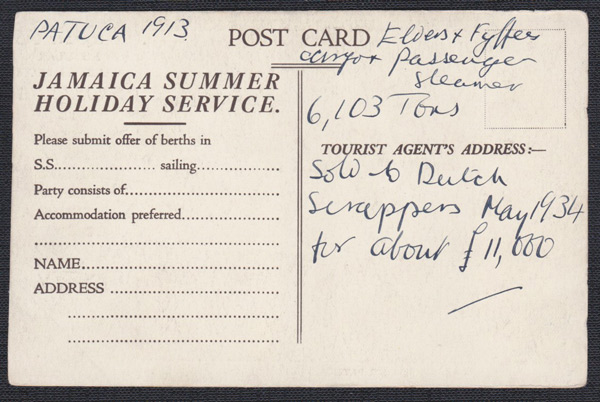 PATUCA 1913.
POST CARD
Elders & Fyffes
cargo & Passenger
Steamer
6,103 Tons
JAMAICA SUMMER
HOLIDAY SERVICE.
Please submit offer of berths in
S.S. .................... sailing....................
Party consists of....................
Accommodation preferred....................
....................
NAME....................
ADDRESS ....................
....................
....................
TOURIST AGENT'S ADDRESS:—
Sold to Dutch
Scrappers May 1934
for about £11,000